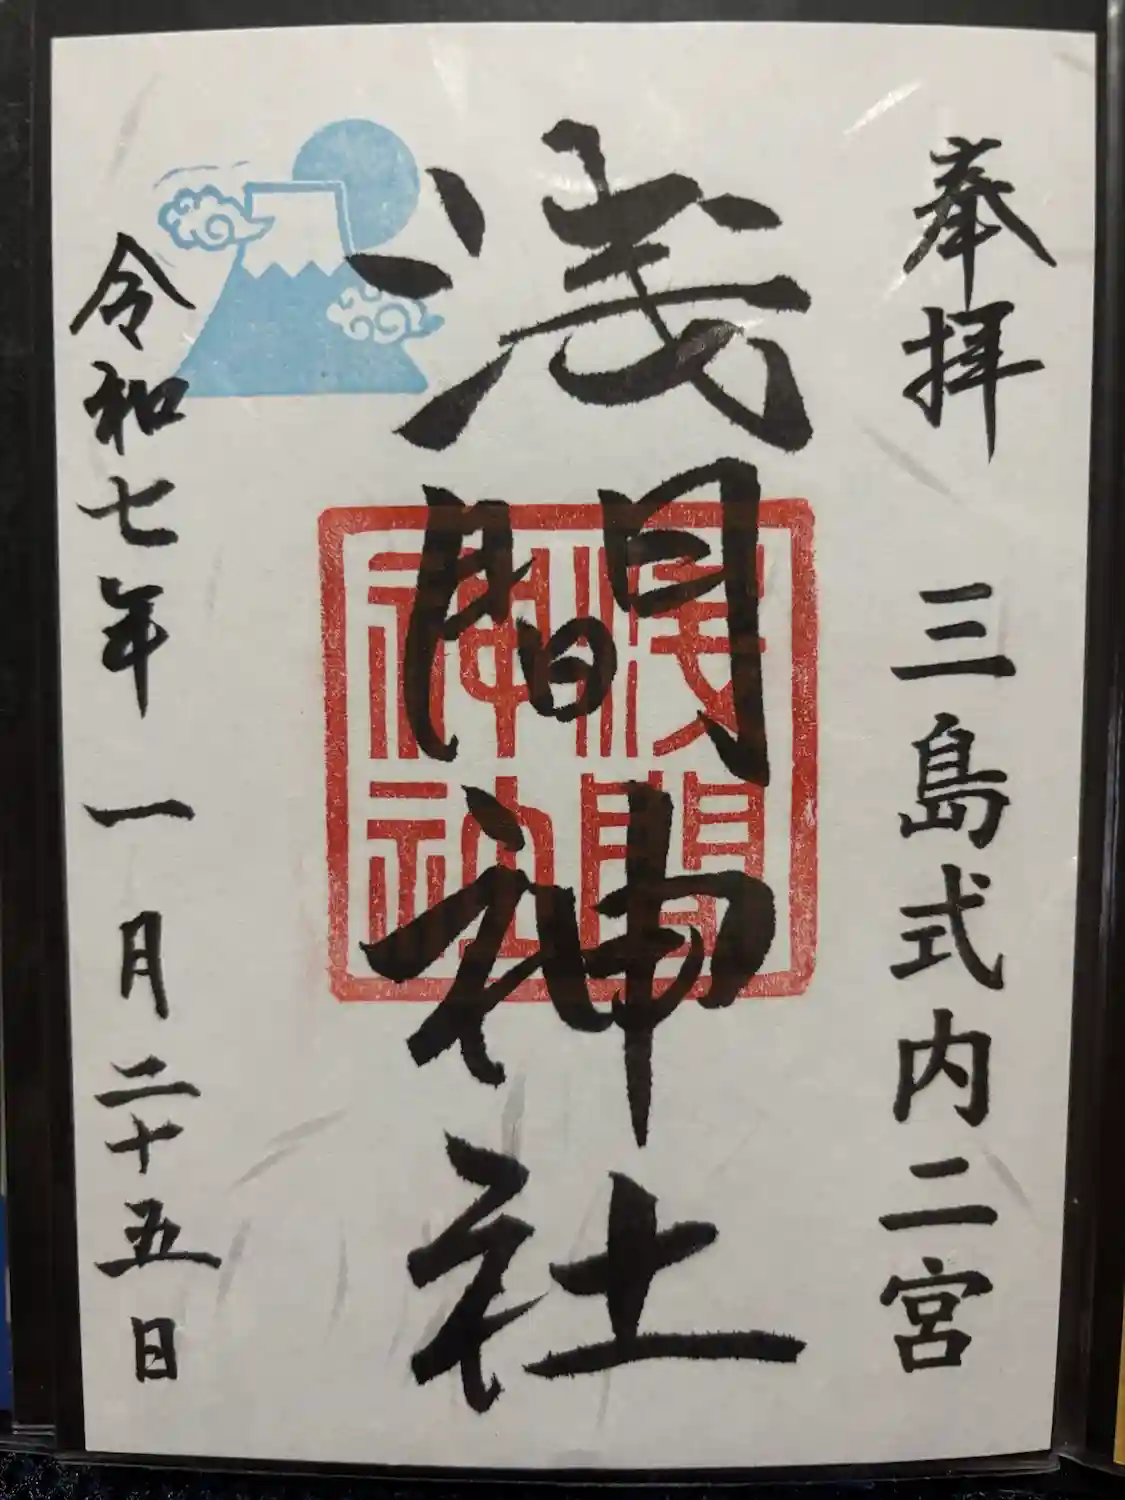 奉拝 三島式内二宮
浅間神社
浅間
神社
令和七年一月二十五日